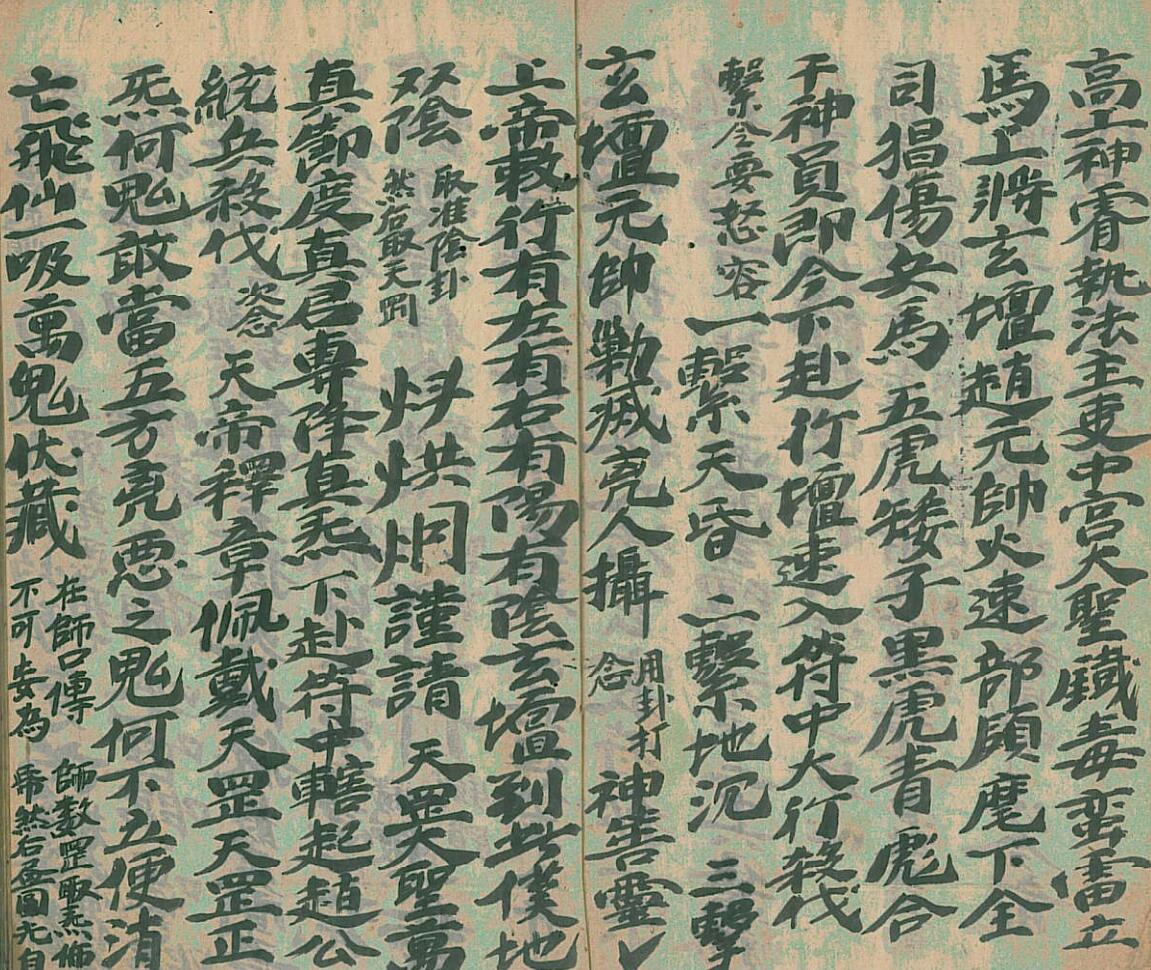 高上神霄執法主吏中宫大聖鐵毒蛮雷立
馬上將玄壇趙元帥火速部領麾下全
司猖傷兵馬五虎矮子黑虎青彪合
干神員即今下赴行壇速入符中大行殺伐
擊令要怒容 一擊天昏 二擊地沉 三擊
玄壇元帥勦滅亮人攝 用卦打念 神善靈
上帝敕行有左有右有陽有陰玄壇到此僕地
双陰 取准陰卦 然后取天罡 烘炯謹請 天罡大聖萬
真節度真君專降真炁下赴符中轄起趙公
統兵殺伐 次念 天帝釋章佩戴天罡天罡正
炁何鬼敢當五方亮惡之鬼何不立便清
亡飛仙一吸萬鬼伏藏 在師口傳 不可妄為 師数罡取炁佈 然后圓光自